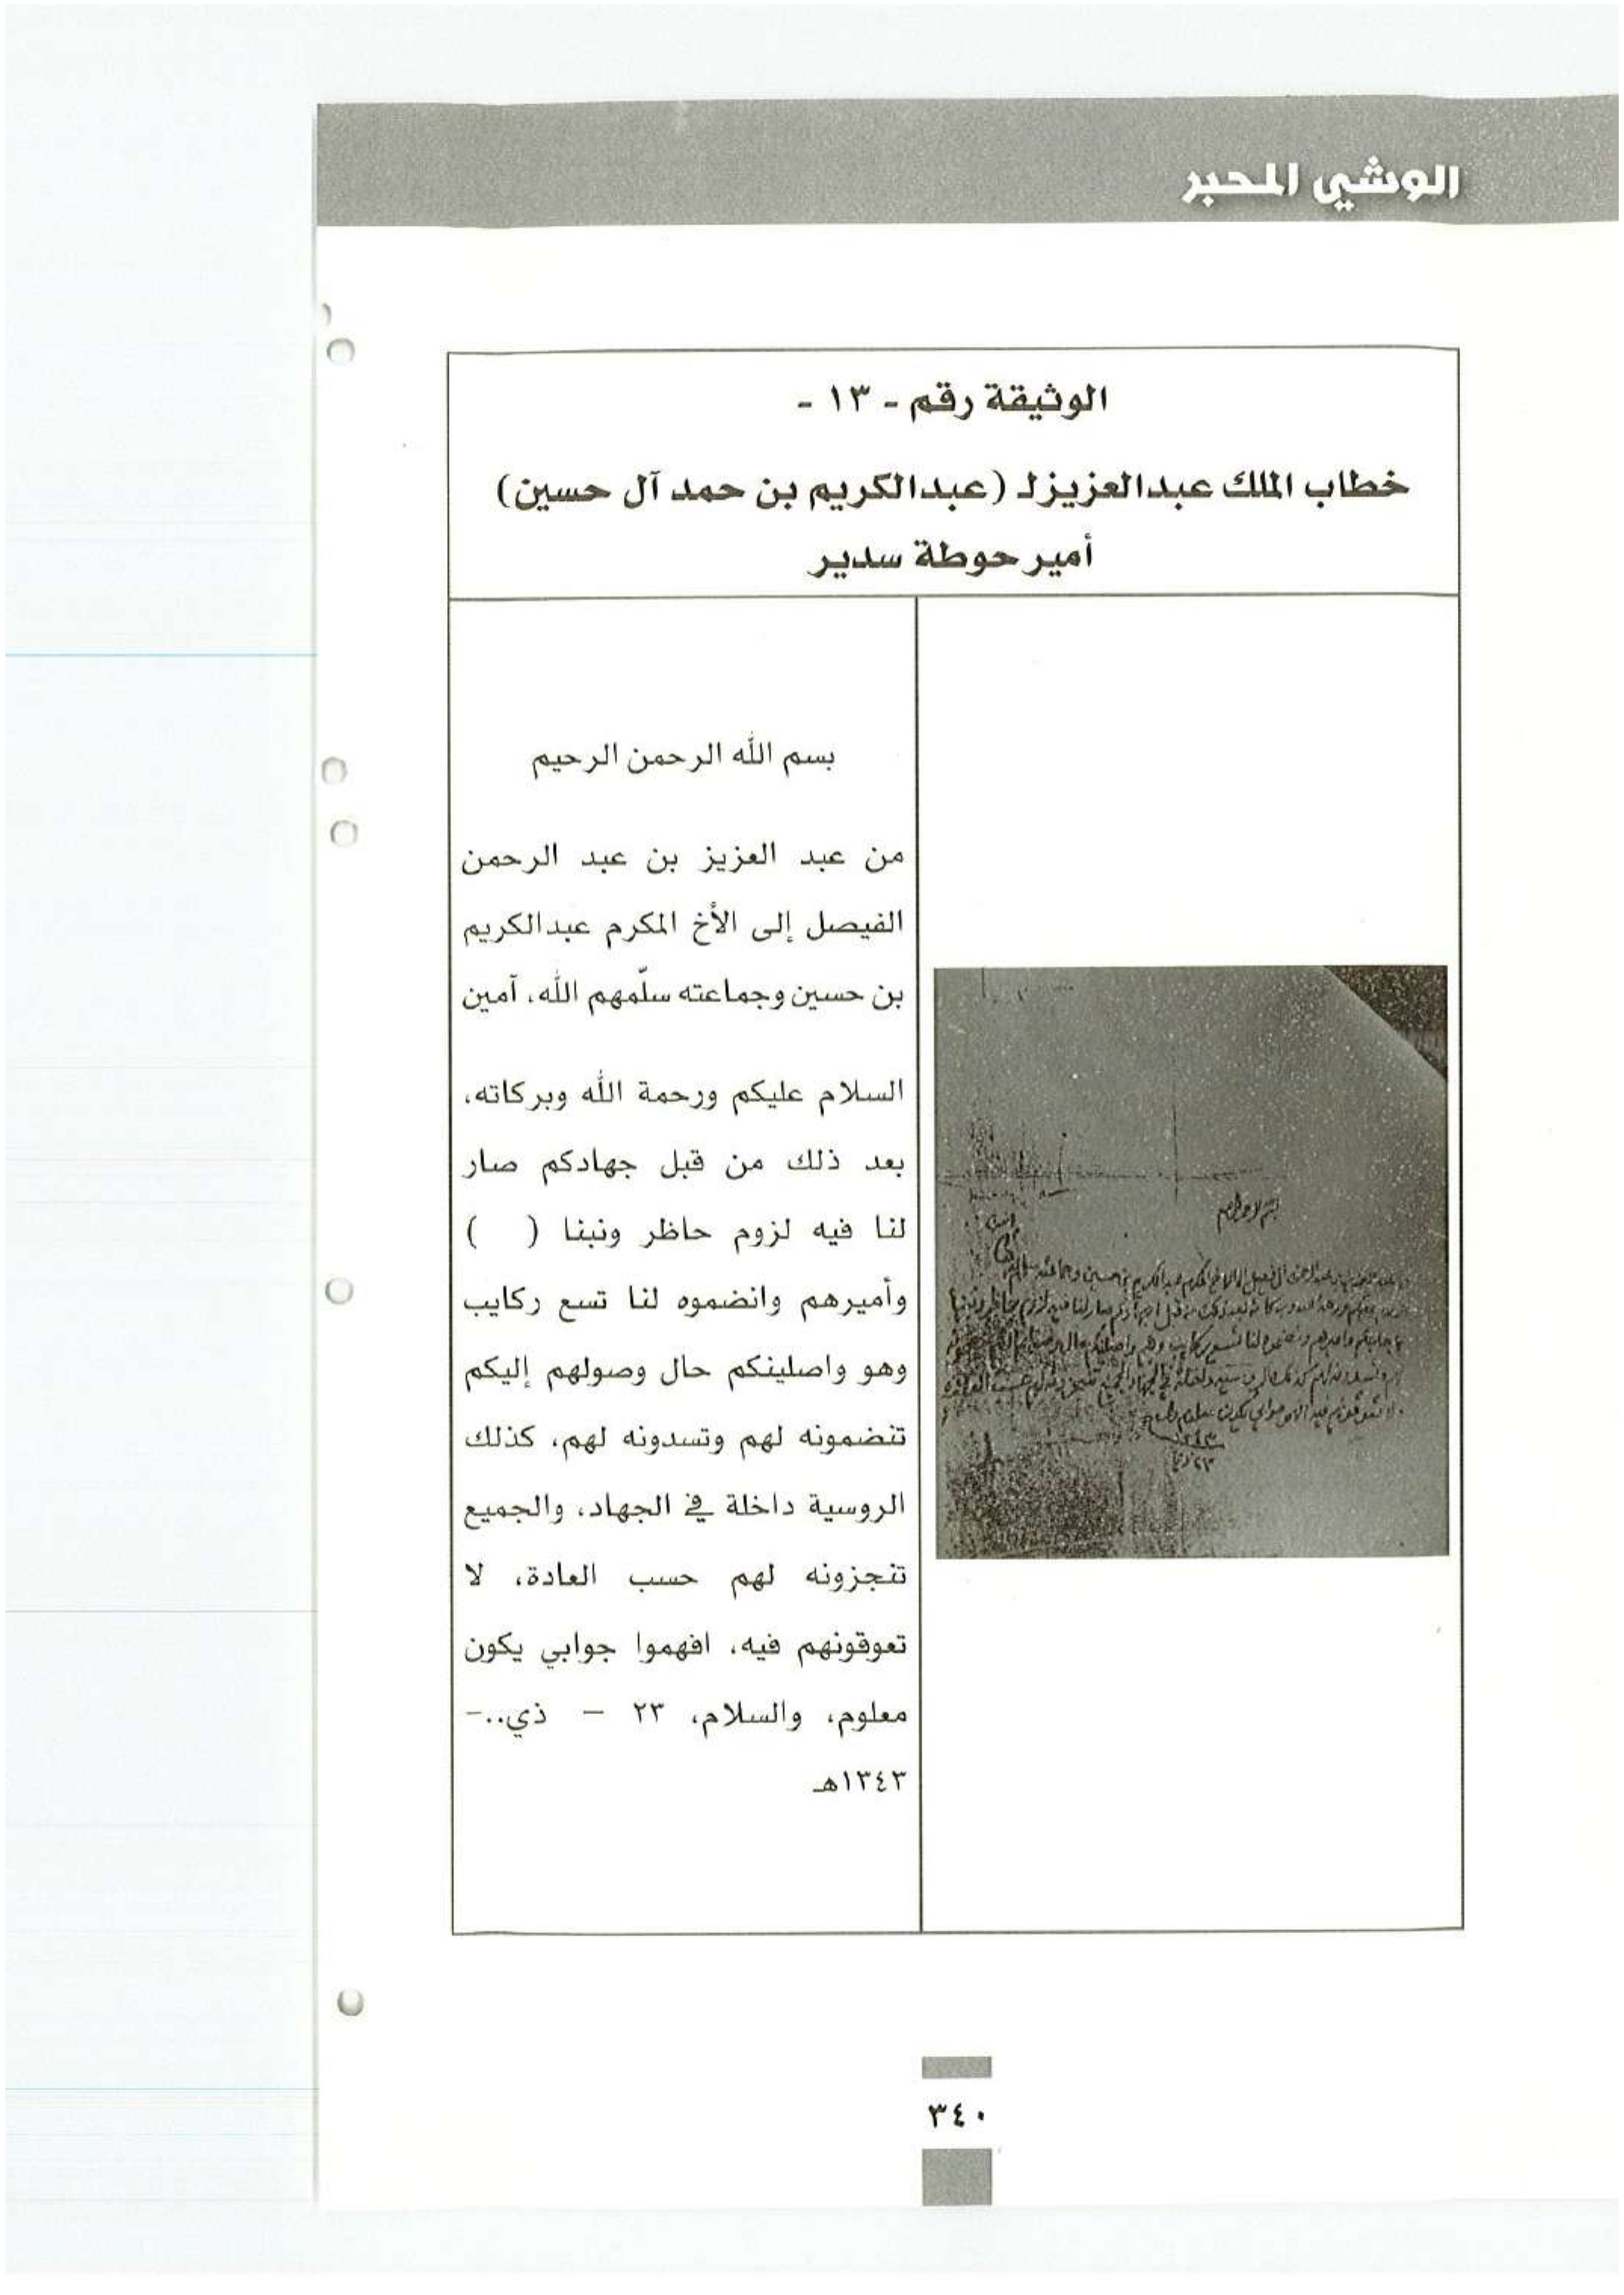 الوشي المحبر
الوثيقة رقم - ١٣ -
خطاب الملك عبدالعزيز لـ (عبدالكريم بن حمد آل حسين)
أمير حوطة سدير
بسم الله الرحمن الرحيم
من عبد العزيز بن عبد الرحمن
الفيصل إلى الأخ المكرم عبدالكريم
بن حسين وجماعته سلّمهم الله، آمين
السلام عليكم ورحمة الله وبركاته،
بعد ذلك من قبل جهادكم صار
لنا فيه لزوم حاظر ونبنا (   )
وأميرهم وانضموه لنا تسع ركايب
وهو واصلينكم حال وصولهم إليكم
تنضمونه لهم وتسدونه لهم، كذلك
الروسية داخلة في الجهاد، والجميع
تنجزونه لهم حسب العادة، لا
تعوقونهم فيه، افهموا جوابي يكون
معلوم، والسلام، ٢٣ – ذي..-
١٣٤٣هـ
٣٤٠